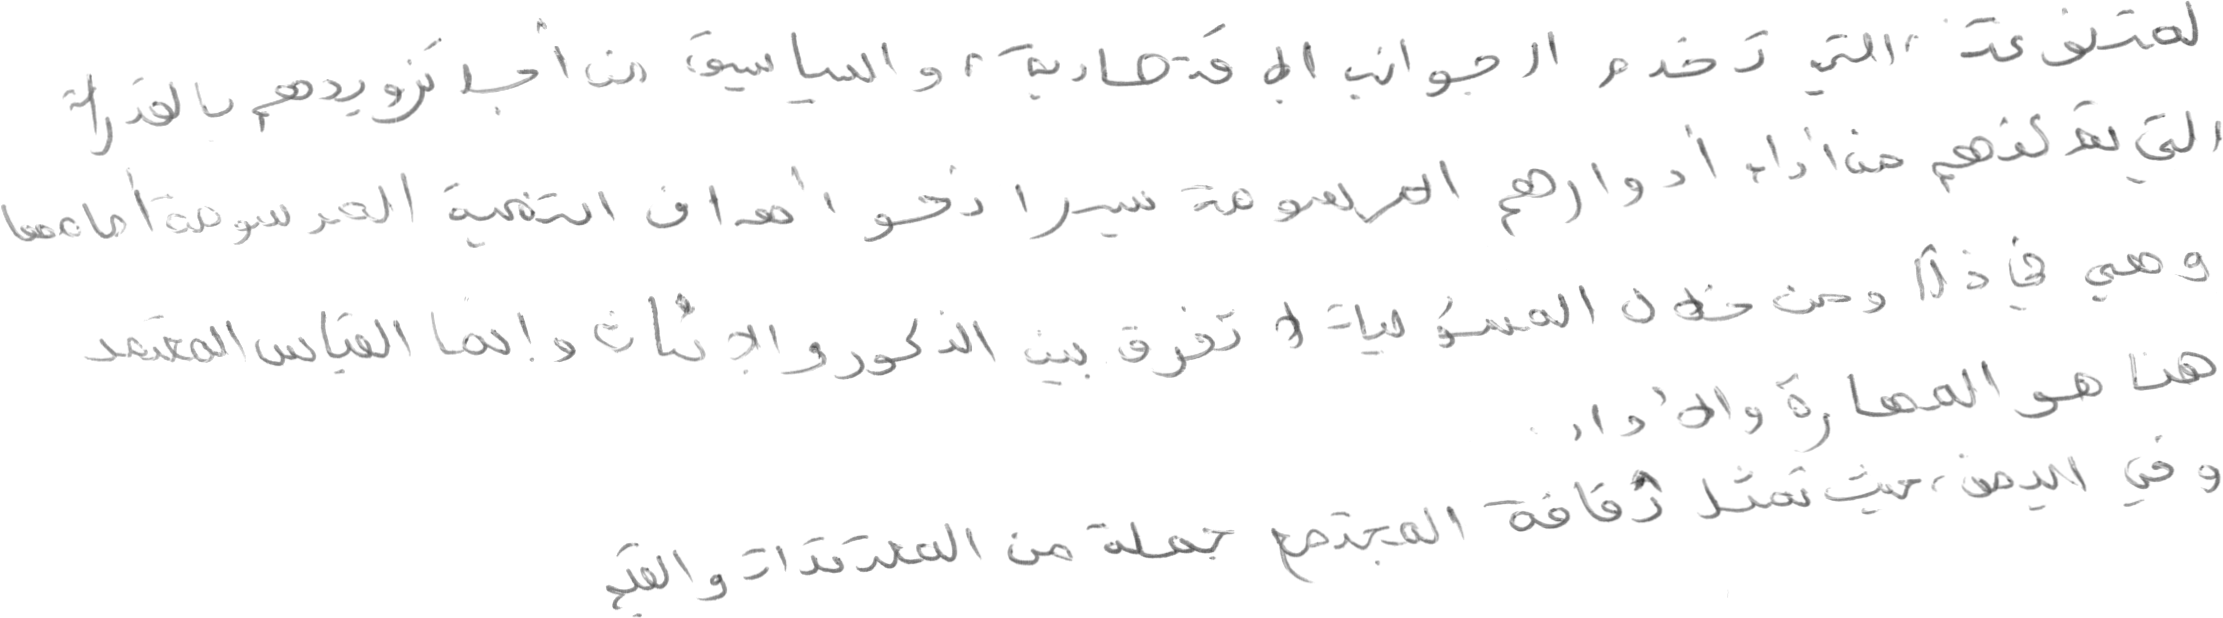 لمتنوعة، التي تخدم الجوانب الاقتصادية، والسياسية من أجل تزويدهم بالقدرات
التي تمكنهم من أداء أدوارهم المرسومة سيرا نحو أهداف التنمية المرسومة أمامها
وهي في ذلك ومن خلال المسؤوليات لا تفرق بين الذكور والإناث وإنما القياس المعتمد
هنا هو المهارة والأداء.
وفي اليمن، حيث تمثل ثقافة المجتمع جملة من المعتقدات والقيم